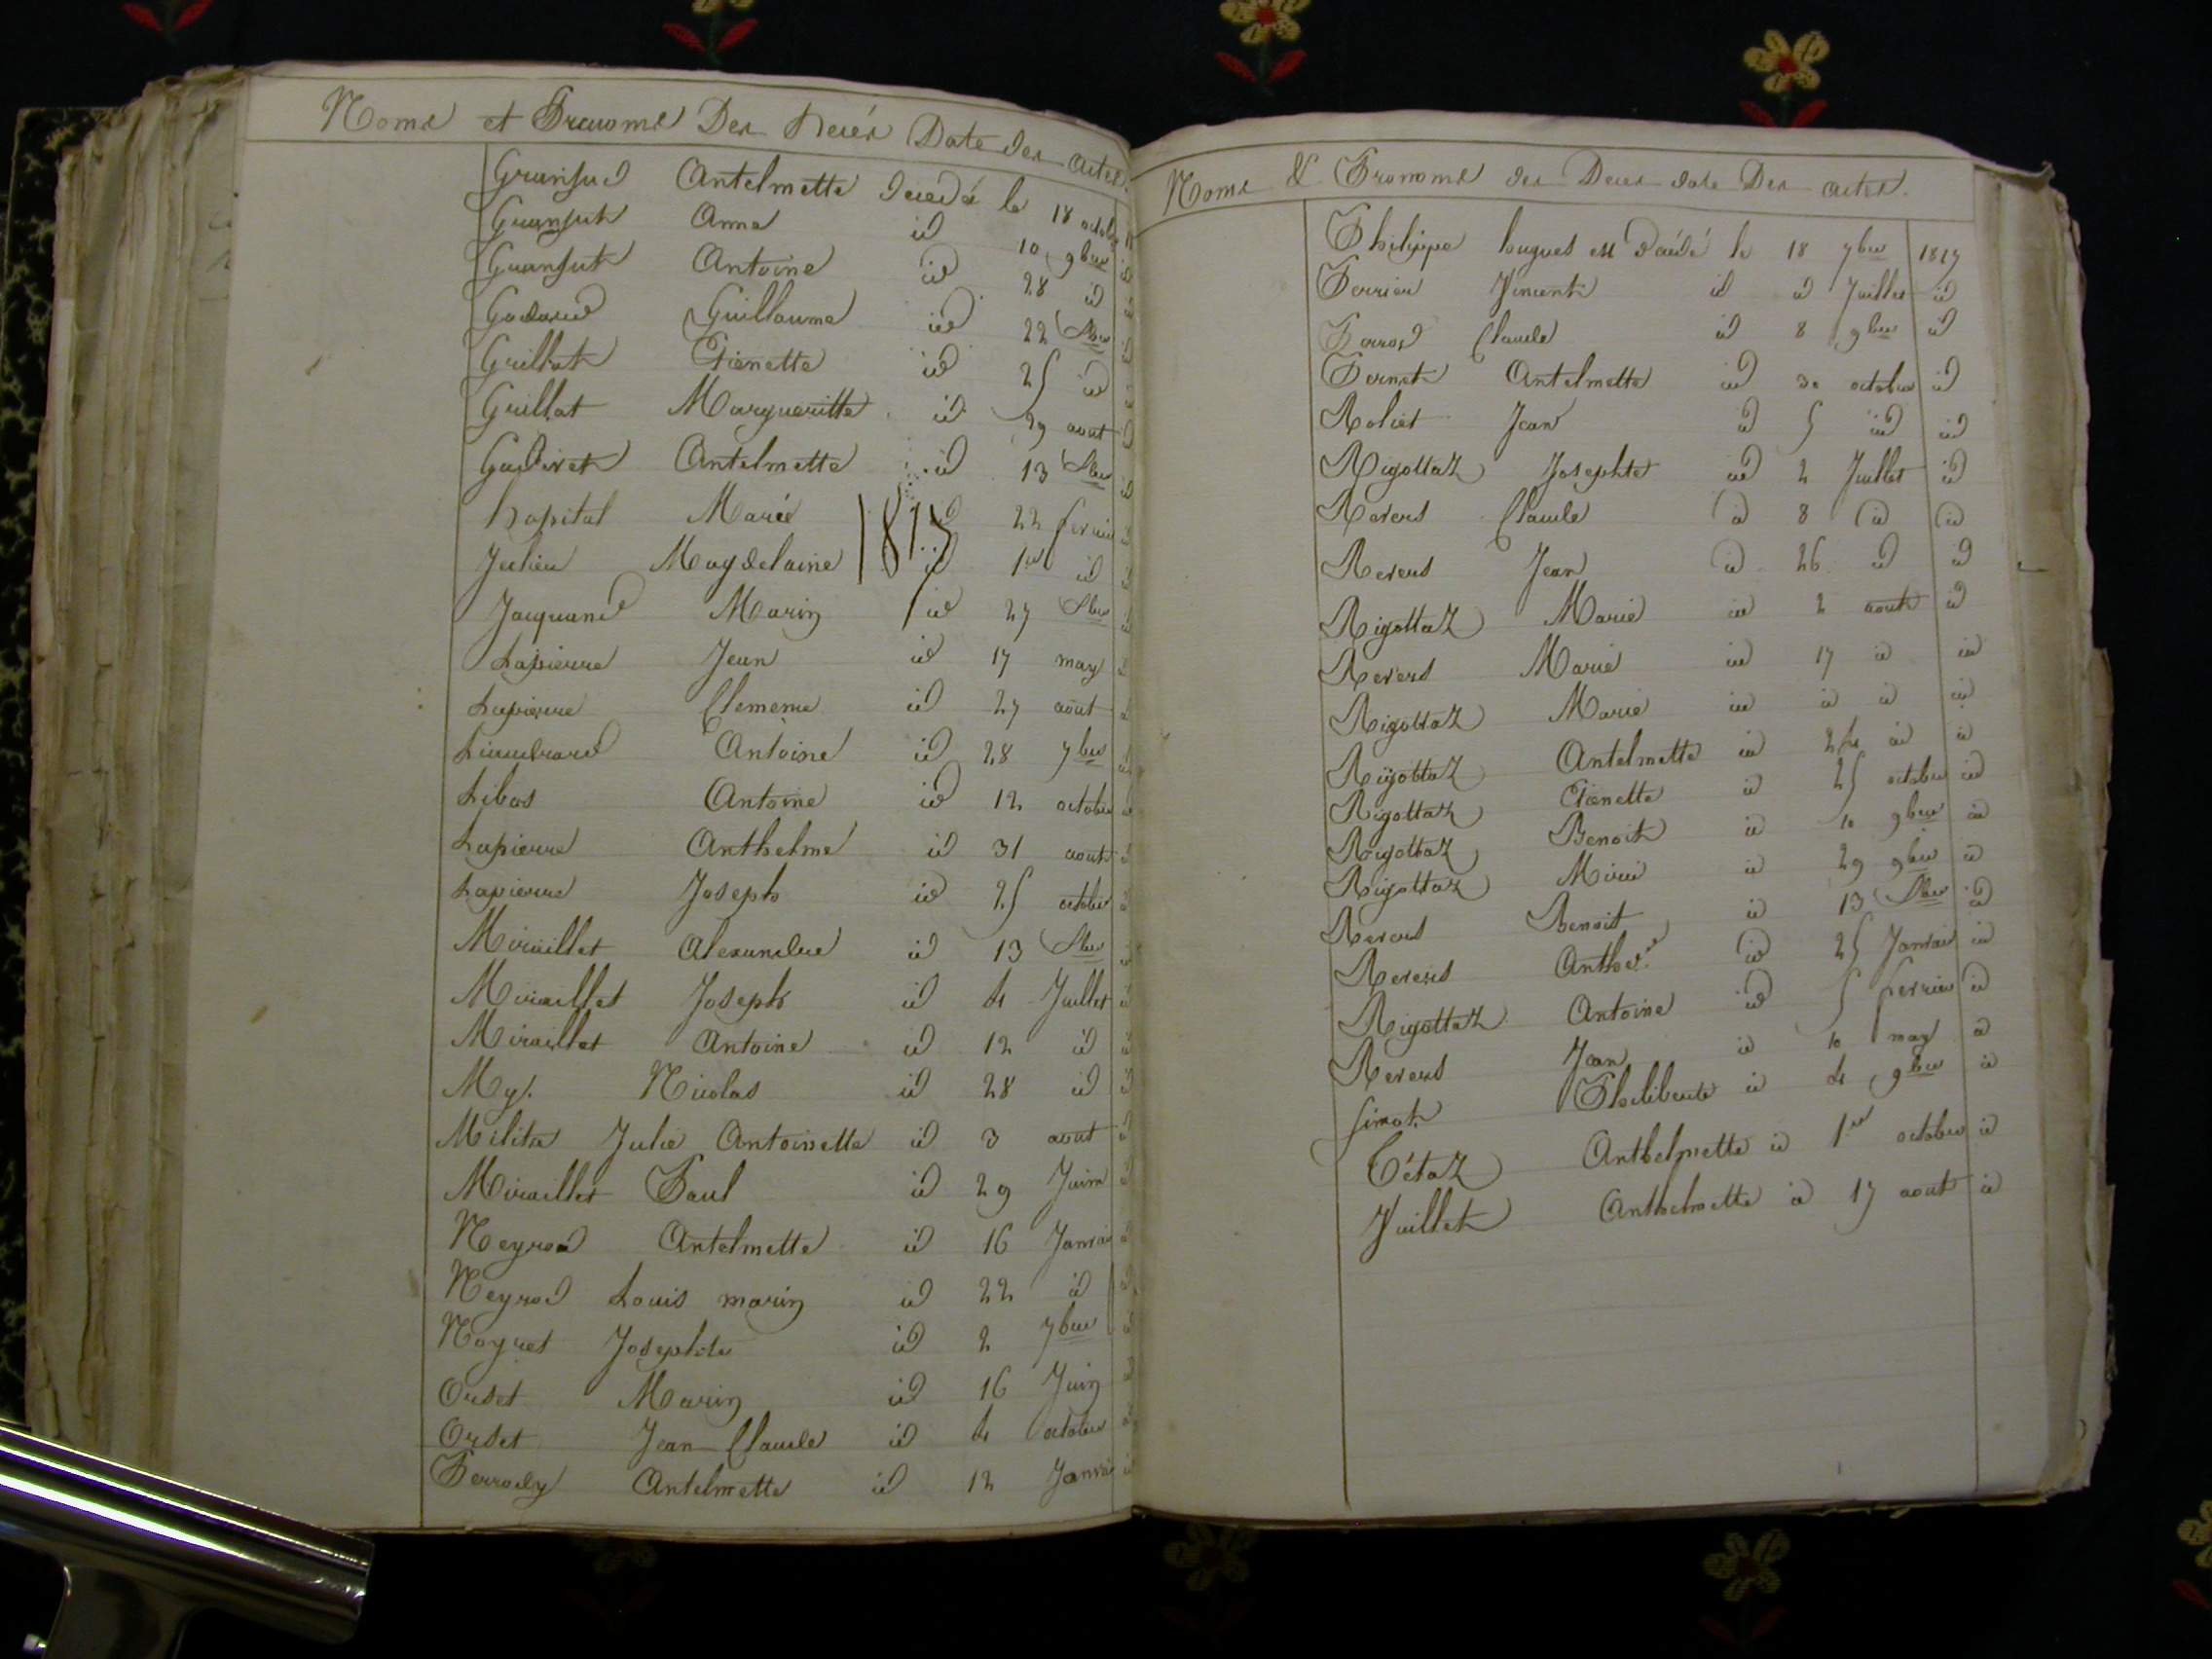 Noms et Prenoms Des Deces Date des actes
Granjud Antelmette decedé le 18 octobre
Granjut Anne id 10 9bre
Granjut Antoine id 28 id id
Guillaume id 22
Grillat Etienette id 25 id
Grillat Margueritte id 29 aout
Antelmette id 13
hopital Marie id 22
1815
Julien Magdelaine id 1er id
Jacquand Marin id 27
Lapierre Jean id 17 may
Lapierre Clemence id 27 août
Antoine id 28 7bre
Libos Antoine id 12 octobre
Lapierre Anthelme id 31 aout
Lapierre Joseph id 25 octobre
Miraillet Alexandre id 13
Miraillet Joseph id 4 Juillet
Miraillet Antoine id 12 id
My. Nicolas id 28 id
Milita Julie Antoinette id 3 aout
Miraillet Paul id 29 Juin
Neyrod Antelmette id 16 Janvier
Neyrod Louis marin id 22 id
Neyret Josephte id 2 7bre
Orset Marin id 16 Juin
Orset Jean Claude id 4 octobre
Perrody Antelmette id 12 Janvier
Noms & Pronoms des Deces date Des actes.
Philippe hugues est décédé le 18 7bre
Perrier Vincent id id Juillet id
Claude id 8 9bre id
Pernet Antelmette id 30 octobre id
Roliet Jean id 5 id id
Rigottaz Josephte id 2 Juillet id
Revers Claude id 8 id id
Revers Jean id 26 id id
Rigottaz Marie id 2 aout id
Revers Marie id 17 id id
Rigottaz Marie id id id id
Rigottaz Antelmette id 24 id id
Rigottaz Etienette id 25 octobre id
Rigottaz Benoit id 10 9bre id
Rigottaz id 29 9bre id
Revers Benoit id 13 id
Revers id 25 Janvier id
Rigottaz Antoine id 5 fevrier id
Revers Jean id 10 may id
Simot Philiberte id 4 9bre id
Tétaz Anthelmette id 1er octobre id
Vuillet Anthelmette id 17 aout id